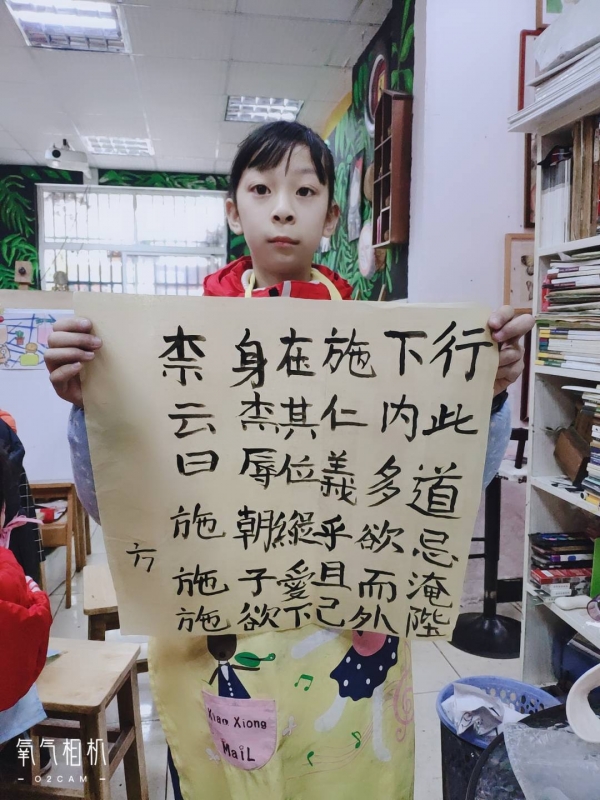 行此道忌淹陛
下内多欲而外
施仁義乎且己
在其位縱愛下
身杰辱朝子欲
柰云曰施施施
Xiao Xiong
MaiL
氧气相机
- O2CAM -